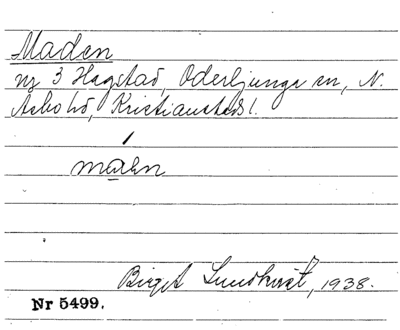 Maden
nr 3 Hagstad, Oderljunga sn, N.
Åsbo hd, Kristianstads l.
Birgit Lundkvist, 1938.
Nr 5499.